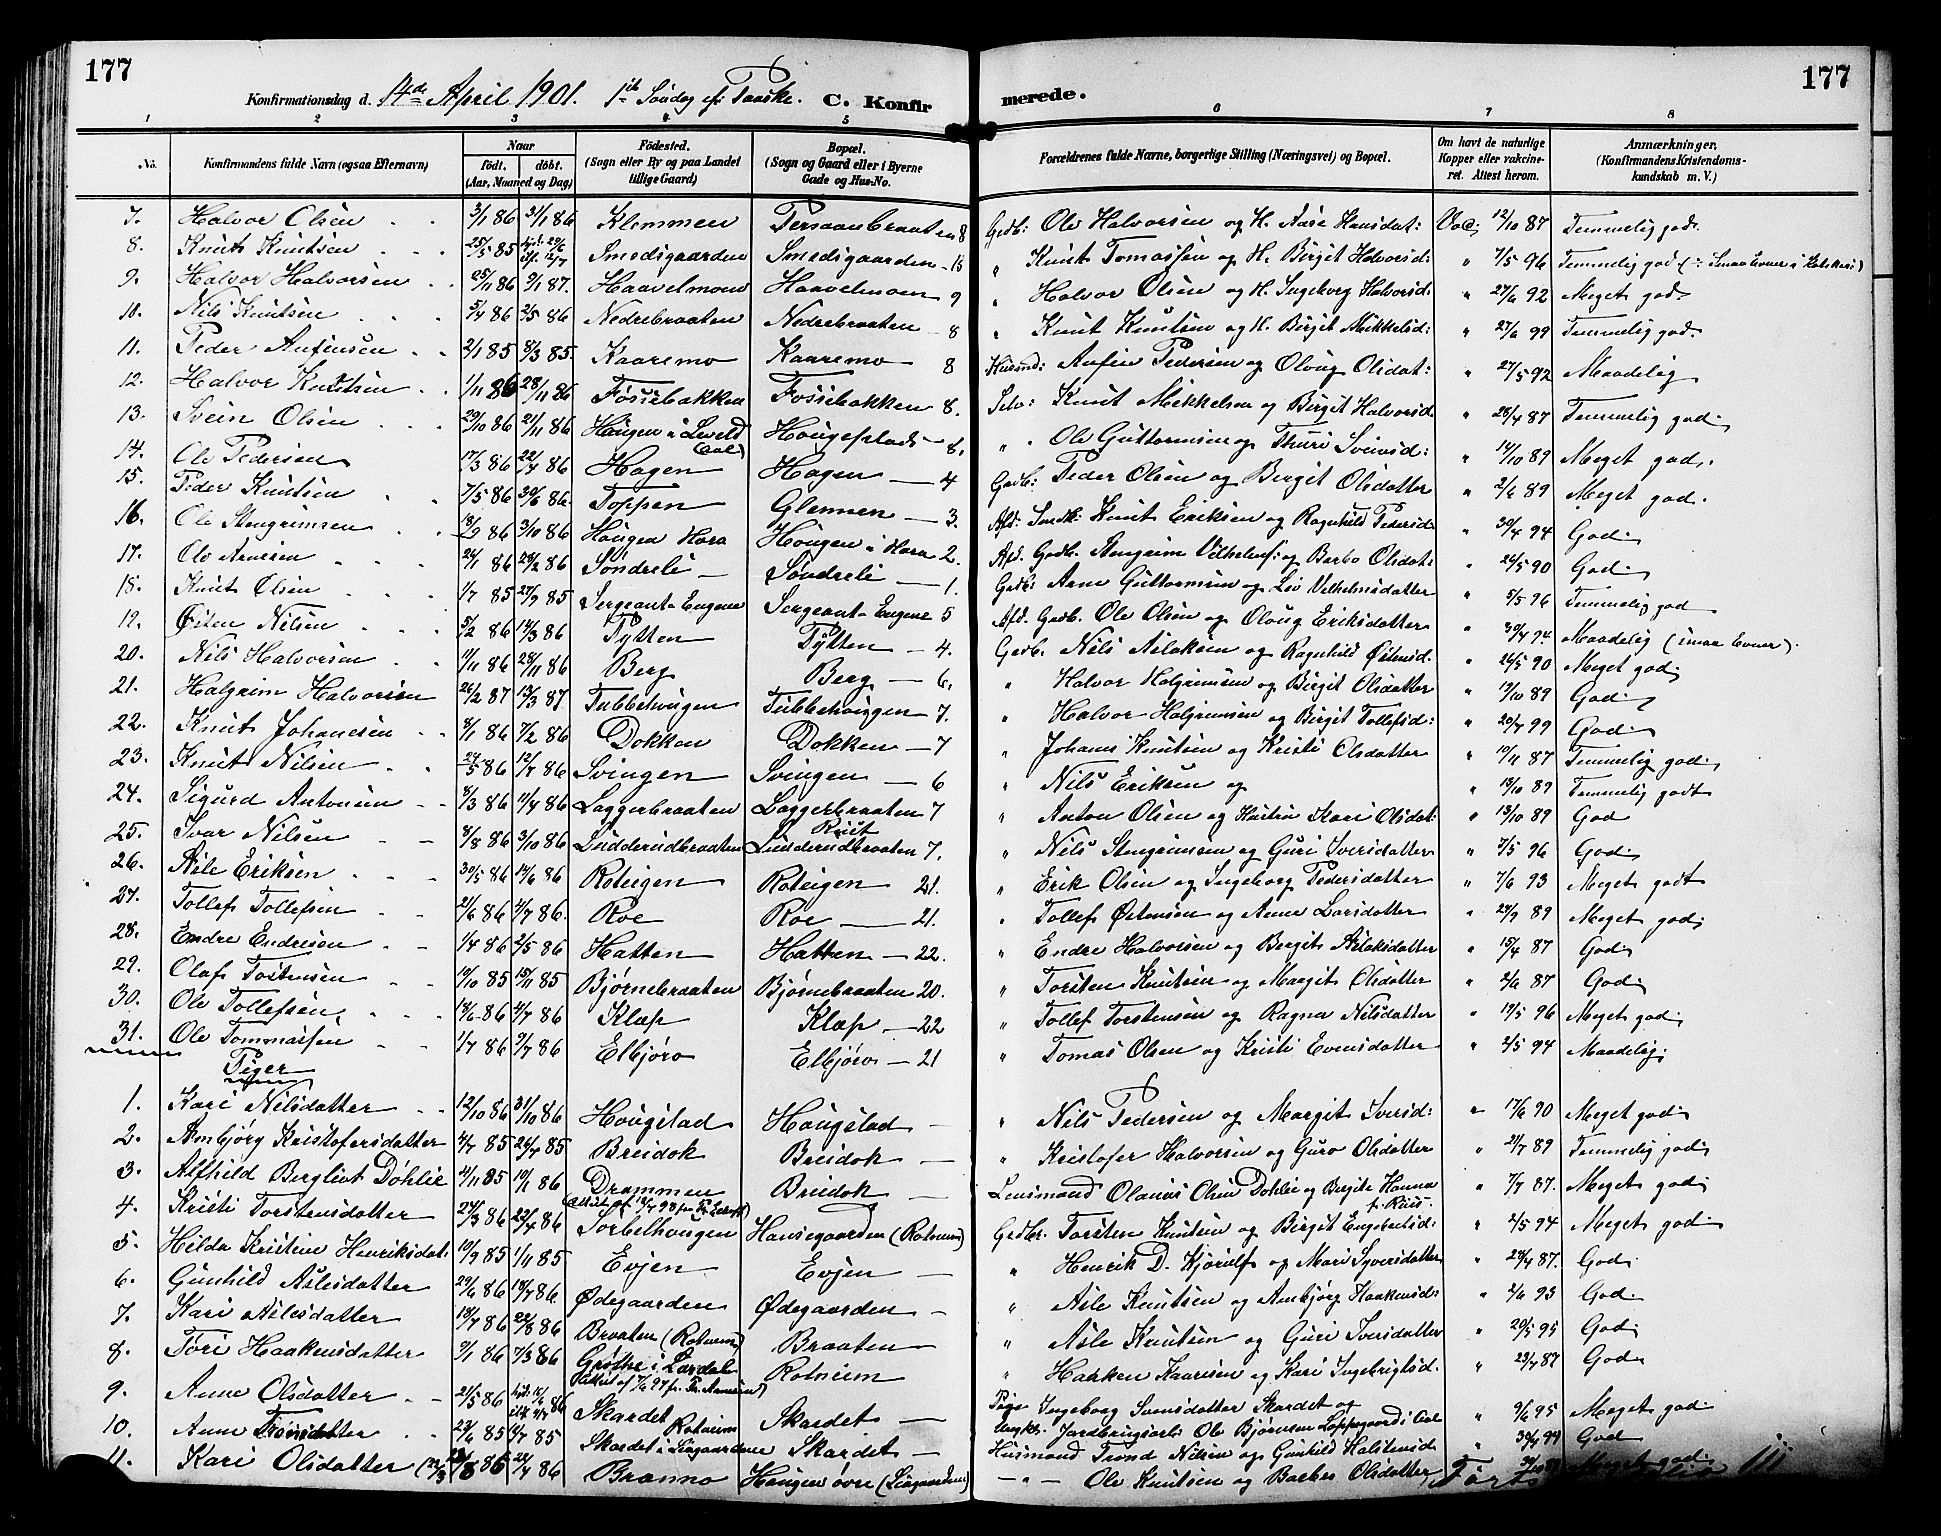 177
177
Konfirmationsdag d. 14de April 1901. 1ste Søndag ef. Paaske. C. Konfirmerede.
1 2 3 4 5 6 7 8
No. Konfirmandens fulde Navn (ogsaa Efternavn) Naar født. døbt. (Aar, Maaned og Dag) Fødested. (Sogn eller By og paa Landet tillige Gaard) Bopæl. (Sogn og Gaard eller i Byerne Gade og Hus-No. Forældrenes fulde Navne, borgerlige Stilling (Næringsvei) og Bopæl. Om havt de naturlige Kopper eller vakcineret. Attest herom. Anmærkninger. (Konfirmandens Kristendomskundskab m. V.)
7. Halvor Olsen 3/1 86 31/1 86 Klemmen Persaanbraaten 8 Gedb: Ole Halvorsen og H. Aase Hansdat: Vac: 12/10 87 Temmelig god.
8. Knut Knutsen 25/5 85 Smedsgaarden Smedsgaarden Knut Tomassen og H. Birgit Halvorsd: " 7/5 96 Temmelig god
9. Halvor Halvorsen 25/11 86 2/1 87. Haavelmoen Haavelmoen 9 " Halvor Olsen og H. Ingeborg Halvorsd: " 27/6 92 Meget god.
10. Nils Knutsen 5/4 86 2/5 86 Nedrebraaten Nedrebraaten - 8 " Knut Knutsen og H. Birgit Mikkelsd: " 27/6 99 Temmelig god.
11. Peder Anfinsen 2/1 85 8/3 85. Kaaremo Kaaremo 8 Husmd: Anfin Pedersen og Oloug Olsdat: " 27/5 92 Maadelig
12. Halvor Knutsen 1/11 86 28/11 86 Fossebakken Fossebakken 8. Selv: Knut Mikkelsen og Birgit Halvorsd. " 28/4 87 Temmelig god.
13. Svein Olsen 29/10 86 21/11 86 Haugen i Leveld (Aal) Haugeplads - 8. " Ole Guttormsen og Thuri Sveinsd: " 14/10 89 Meget god.
14. Ole Pedersen 17/3 86 22/4 86 Hagen Hagen - 4 Gedb: Peder Olsen og Bergit Olsdatter " 2/6 89 Meget god.
15. Peder Knutsen 7/5 86 20/6 86. Toppen Glennen - 3. Afd: Smedk: Knut Eriksen og Ragnhild Pedersd: " 30/4 94 God.
16. Ole Stengrimsen 18/9 86 3/10 86 Haugen Hara Haugen i Hara 2. Afd. Gedb. Stengrim Vilhelms: og Barbo Olsdat: " 26/5 90 God.
17. Ole Arnesen 24/1 86 28/2 86 Søndreli - Søndreli - 1. Gedb: Arne Guttormsen og Liv Vilhelmsdatter " 5/5 96 Temmelig god
18. Knut Olsen 1/7 85 27/9 85 Sergeant-Eugene Sergeant-Eugene 5 Afd. Gedb. Ole Olsen og Oloug Eriksdatter " 30/4 94. Maadelig (smaa Evner).
19. Østen Nilsen 5/2 86 14/3 86 Tytten Tytten - 4. Gedb. Nils Aslaksen og Ragnhild Østensd. " 26/5 90 Meget god.
20. Nils Halvorsen 11/11 86 28/11 86 Berg Berg - 6. " Halvor Halgrimsen og Birgit Olsdatter " 19/10 89 God.
21. Halgrim Halvorsen 26/2 87 13/3 87. Tubbehaugen Tubbehaugen 7. " Halvor Halgrimsen og Birgit Tollefsd: " 20/7 99 God.
22. Knut Johanesen 8/1 86 7/2 86 Dokken Dokken - 7 " Johanes Knutsen og Kristi Olsdatter " 10/11 87 Temmelig god.
23. Knut Nilsen 24/5 86 12/7 86 Svingen Svingen - 6 " Nils Eriksen og " 13/10 89 Temmelig godt
24. Sigurd Antonsen 8/3 86 11/4 86 Laggerbraaten Laggerbraaten 7 " Anton Olsen og Hustru Kari Olsdat: " 13/10 89 God
25. Ivar Nilsen 8/8 86 3/10 86 Ludderudbraaten Ludderudbraaten 7. " Nils Stengrimsen og Guri Iversdatter " 7/5 96 God.
26. Asle Eriksen 30/5 86 14/6 86 Roteigen Roteigen 21. " Erik Olsen og Ingeborg Pedersdatter " 7/6 93 Meget godt
27. Tollef Tollefsen 21/6 86 4/7 86. Roe Roe - 21. " Tollef Østensen og Anne Larsdatter " 24/9 89 Meget god.
28. Endre Endresen 1/4 86 2/5 86 Hatten Hatten - 22. " Endre Halvorsen og Bergit Aslaksdatter " 15/4 87 God.
29. Olaf Tostensen 10/10 85 15/11 85 Bjørnebraaten Bjørnebraaten 20. " Torsten Knutsen og Margit Olsdatter " 2/6 87 God.
30. Ole Tollefsen 13/6 86 4/7 86 Klæp Klæp - 22 " Tollef Torstensen og Ragna Nilsdatter " 19/5 96 Meget god.
31. Ole Tommassen 1/7 86 9/7 86 Elbjøro Elbjøro - 21 " Tomas Olsen og Kristi Evensdatter " 2/5 94 Maadelig.
Piger
1. Kari Nilsdatter 12/10 86 31/10 86 Hougstad Hougstad - " Nils Pedersen og Margit Iversd: " 17/6 90 Meget god.
2. Ambjørg Kristofersdatter 4/7 85 26/7 85 Breidok Breidok - " Kristofer Halvorsen og Guro Olsdatter " 2/7 89 Temmelig god.
3. Alfhild Bergliot Døhlie 4/11 85 10/1 86 Drammen Breidok - Lensmand Olaves Olsen Døhlie og Birgite Hanna f. Riis. " 7/7 87. Meget god.
4. Kristi Torstensdatter 24/3 86 22/4 86 Torbelhaugen Hansegaarden (Rotneim) Gedbr. Torsten Knutsen og Birgit Engebretsd: " 2/5 94 Meget god.
5. Hilda Kristine Henriksdat. 10/9 85 1/11 85 Evjen Evjen - " Henrik D. Kjørulf og Mari Syversdatter " 28/4 87. God.
6. Gunhild Aslesdatter 29/6 86 18/7 86. Ødegaarden Ødegaarden - " Asle Knutsen og Ambjørg Haakensd: " 2/6 93 God.
7. Kari Aslesdatter 18/7 86 22/8 86 Braaten (Rotneim) Braaten " Asle Knutsen og Guri Iversdatter " 20/5 95 God.
8. Tori Haakensdatter 9/1 86 7/3 86 Grøthe i Lærdal Rotneim " Haaken Kaaresen og Kari Ingebrigtsd. " 23/7 87 God.
9. Anne Olsdatter 21/5 86 Skardet Rotneim Skardet - Pige Ingeborg Svensdatter Skardet og Ungkr. Jordbrugsarb. Ole Bjørnsen Loppegaard i Aal " 9/6 95 Meget god.
10. Anne Trondsdatter 23/6 85 4/7 85 Skardet i Liagaardene Skardet - Husmand Trond Nilsen og Gunhild Halstensd. " 30/4 94 God
11. Kari Olsdatter 86 24/4 86 Brænno Haugen øvre (Liagaarden) - " - Ole Knutsen og Barbro Olsdatter, Meget god.